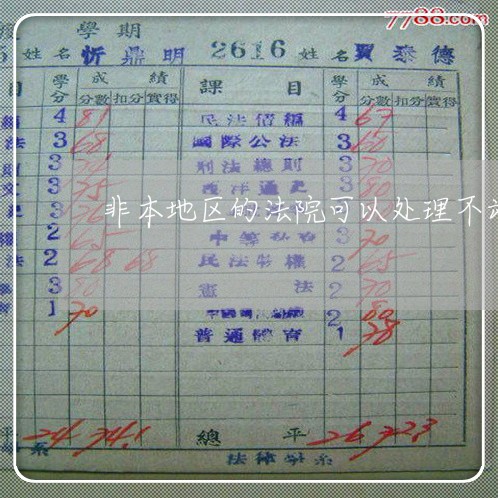 7788.com
學期
5 姓名 忻鼎明 2616 姓名 賈泰德
目 學分 成績 課目 學分 成績
分數 扣分 實得 分數 扣分 實得
4 81 民法債編 4 67
法 3 68 國際公法 3 60
3 刑法總則 3 70
文 3 75 西洋通史 3 80
非本地区的法院可以处理不
2 65 3 70
法 2 68 68 民法物權 2 65
3 80 憲法 2 70
1 70 2 80
普通體育 1 78
平 24 74.1 總平 26 72.3
系 法律學系